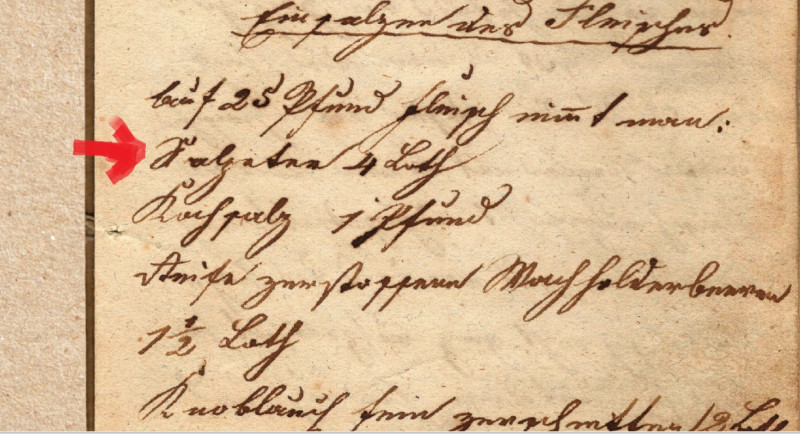 Einsalzen des Fleisches.
Auf 25 Pfund Fleisch nim̅t man:
Salpeter 4 Loth
Kochsalz 1 Pfund
Reife zerstossene Wachholderbeeren
1 1/2 Loth
Knoblauch fein zerschnitten 2 Loth